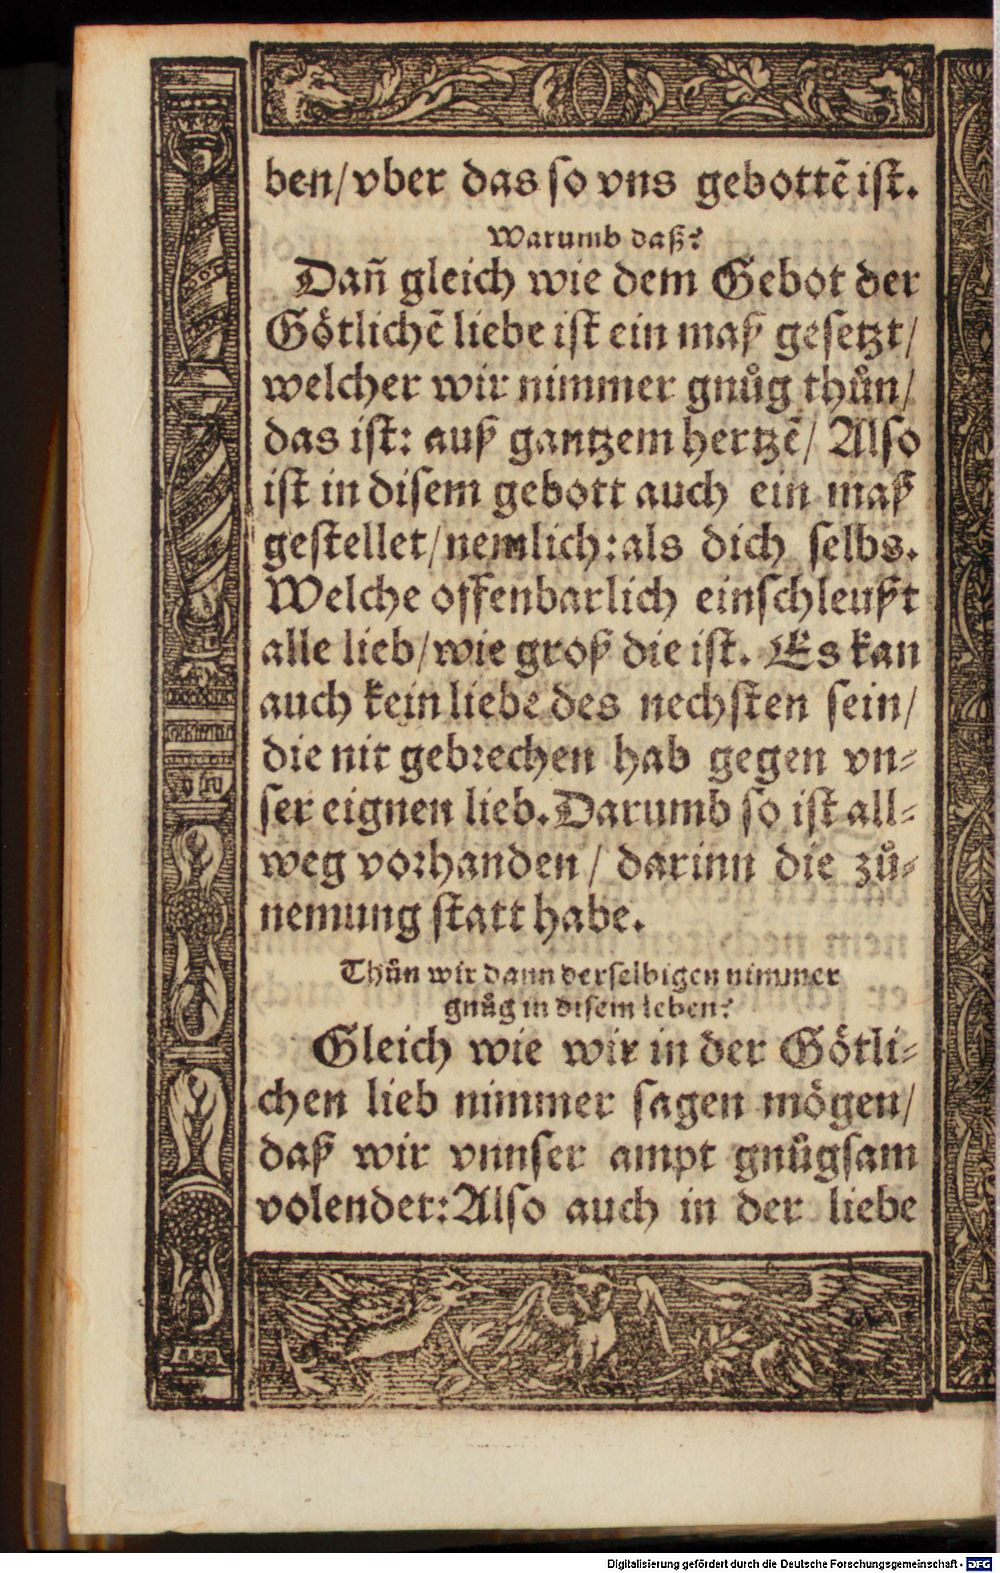 ben/vber das so vns gebottẽ ist.
Warumb daß?
Dañ gleich wie dem Gebot der
Goͤtlichẽ liebe ist ein maß gesetzt/
welcher wir nimmer gnuͦg thuͦn/
das ist: auß gantzem hertzẽ/ Also
ist in disem gebott auch ein maß
gestellet/nemlich:als dich selbs.
Welche offenbarlich einschleußt
alle lieb/wie groß die ist. Es kan
auch kein liebe des nechsten sein/
die nit gebrechen hab gegen vn⸗
ser eignen lieb. Darumb so ist all⸗
weg vorhanden/ darinn die zuͦ⸗
nemung statt habe.
Thuͦn wir dann derselbigen nimmer
gnuͦg in disem leben?
Gleich wie wir in der Goͤtli⸗
chen lieb nimmer sagen moͤgen/
daß wir vnnser ampt gnuͦgsam
volendet: Also auch in der liebe
Digitalisierung gefördert durch die Deutsche Forschungsgemeinschaft - DFG